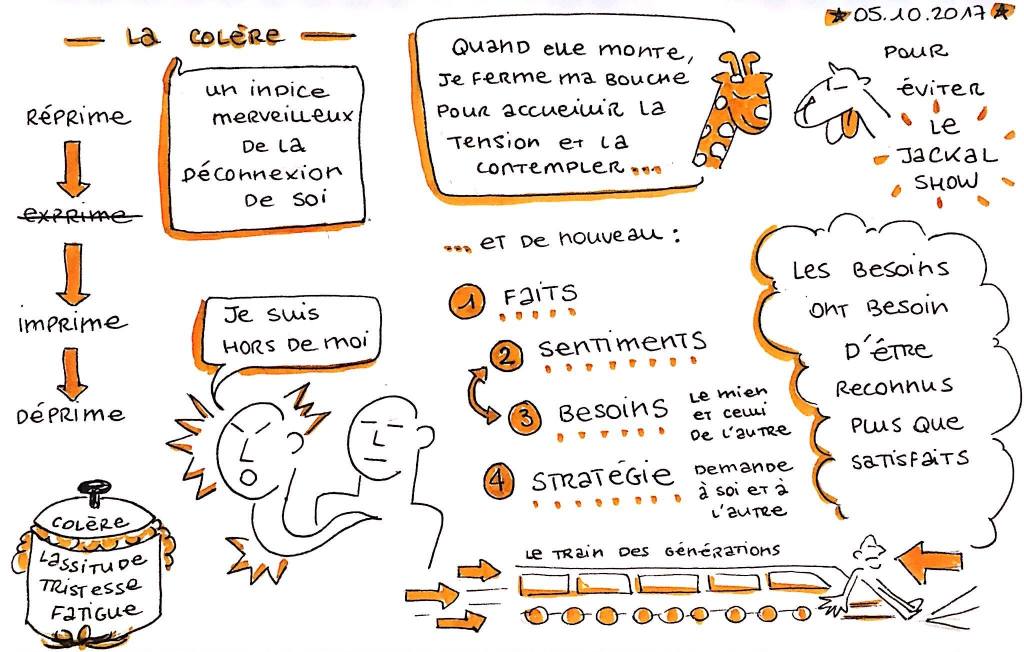 La colère
★ 05.10.2017 ★
Réprime
exprime
imprime
Déprime
un indice
merveilleux
de la
déconnexion
de soi
Quand elle monte,
je ferme ma bouche
pour accueillir la
tension et la
contempler ...
pour
éviter
le
Jackal
show
... et de nouveau :
1 Faits
2 Sentiments
3 Besoins
le mien
et celui
de l'autre
4 Stratégie
Demande
à soi et à
l'autre
Les besoins
ont besoin
d'être
reconnus
plus que
satisfaits
Je suis
hors de moi
colère
Lassitude
Tristesse
Fatigue
Le train des générations